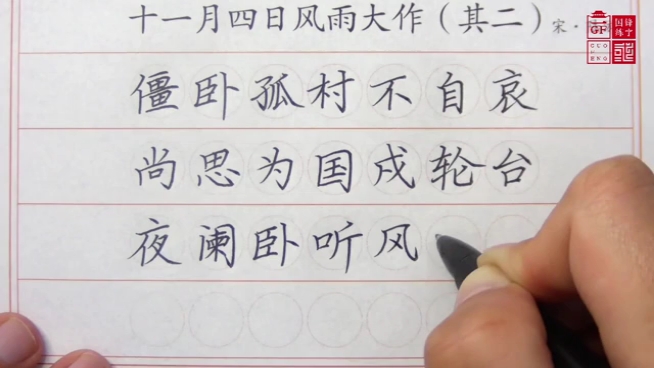 十一月四日风雨大作（其二）宋·
僵卧孤村不自哀
尚思为国戍轮台
夜阑卧听风
GF